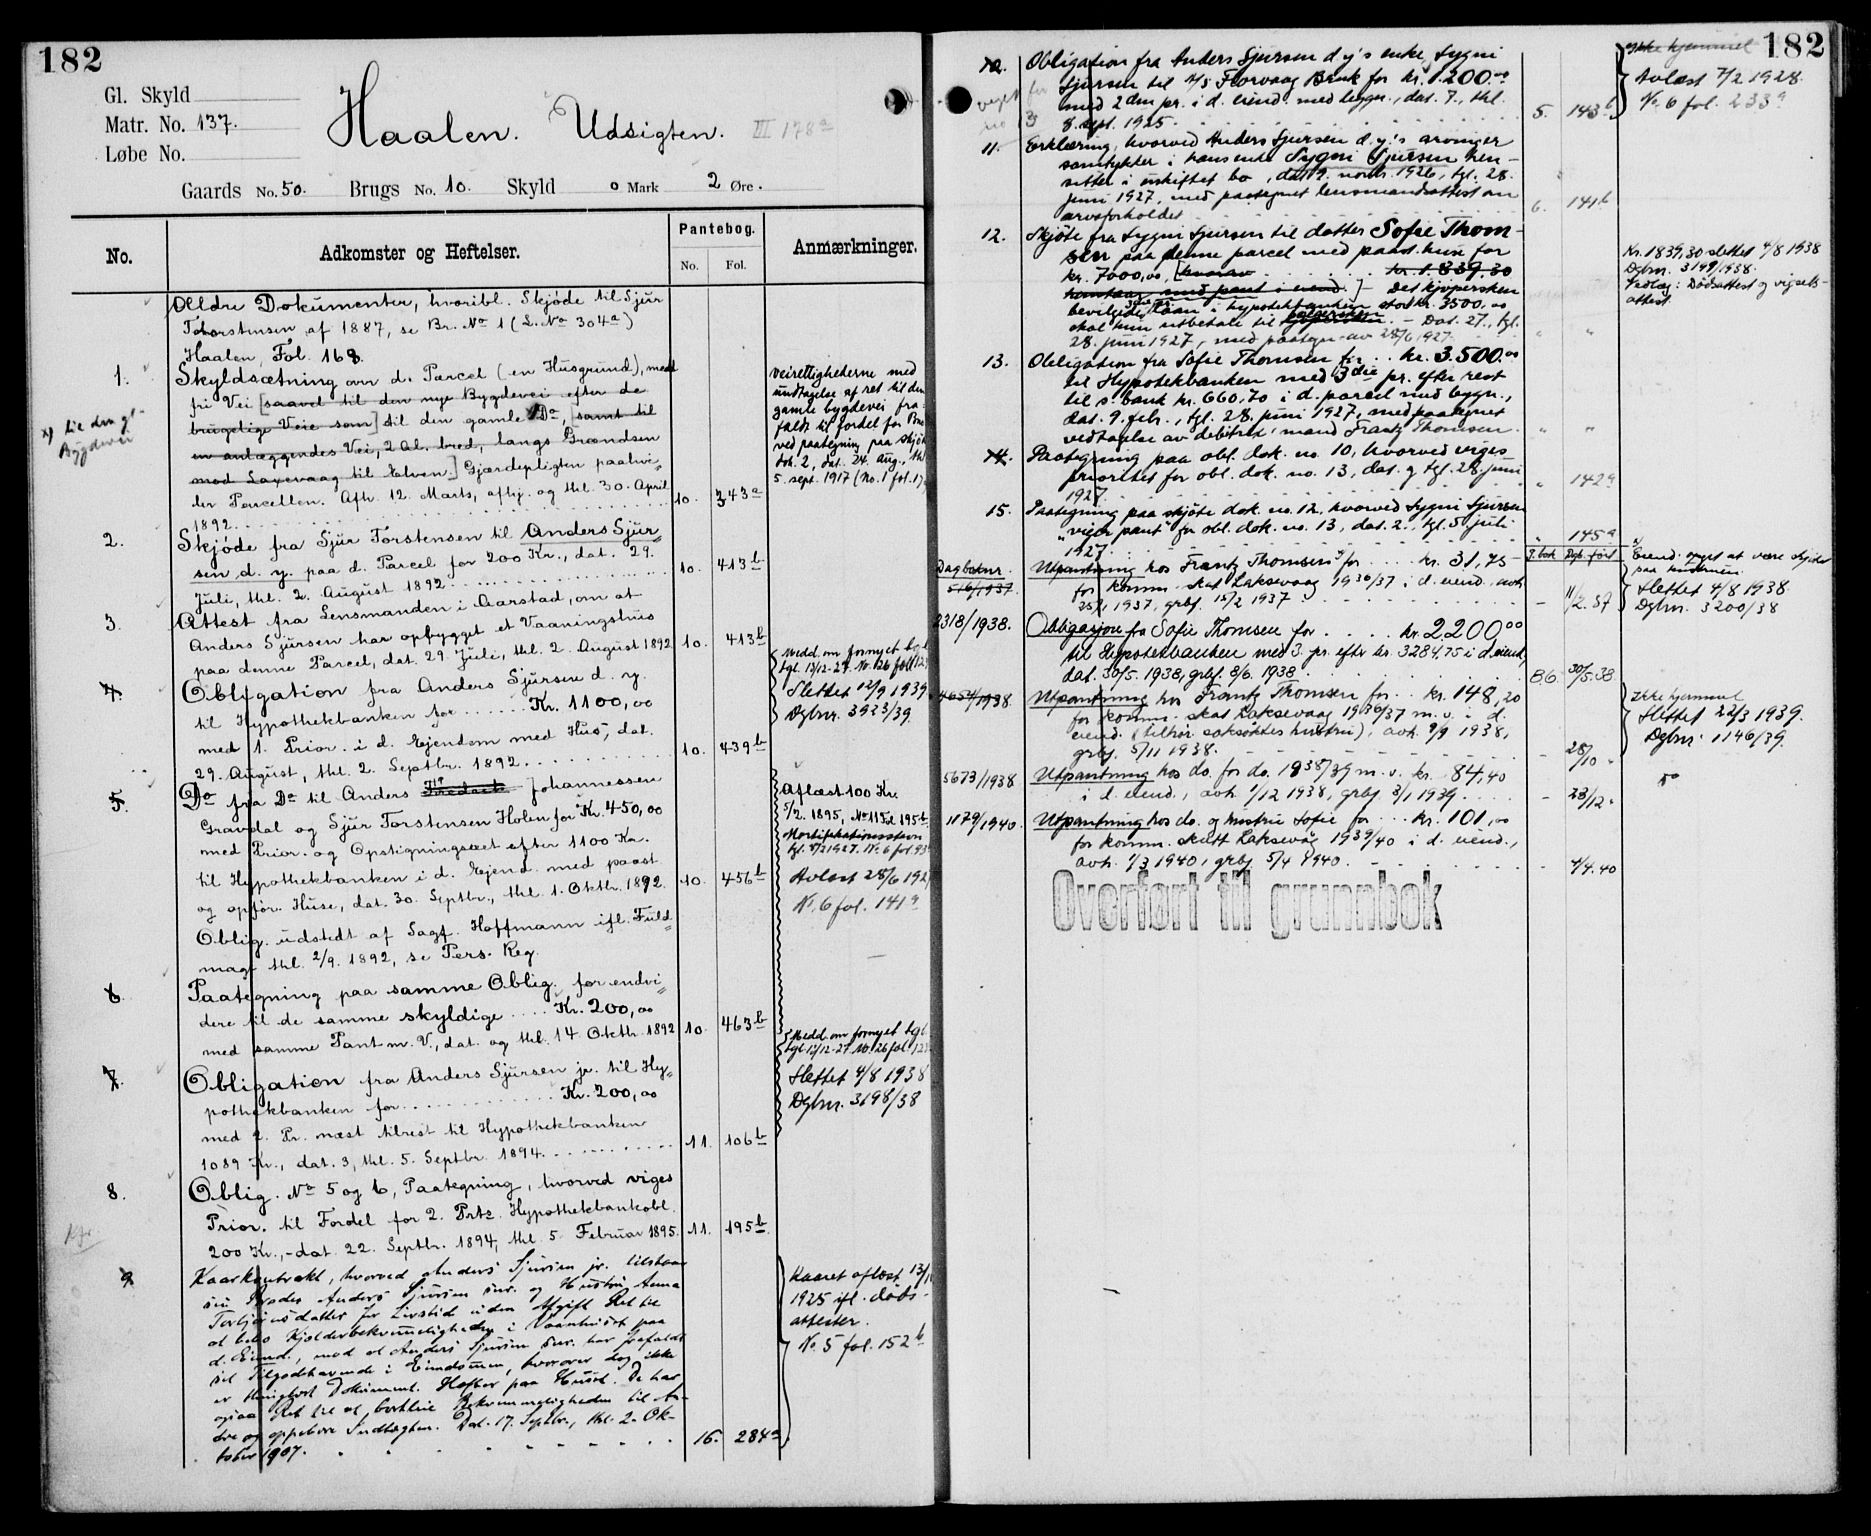 182
Gl. Skyld
Matr. No. 137.
Løbe No.
Haalen. Udsigten. III 178a
Gaards No. 50. Brugs No. 10. Skyld 0 Mark 2 Øre.
No.
Adkomster og Heftelser.
Pantebog.
No. Fol.
Anmærkninger.
Ældre Dokumenter, hvoribl. Skjøde til Sjur
Thorstensen af 1887, se Br. No 1 (L. No 304a)
Haalen, Fol. 168.
1. Skyldsætning over d. Parcel (en Husgrund), med
fri Vei [saavel til den nye Bygdevei efter de
brugelige Veie som] til den gamle Do, [samt til
en anlæggendes Vei, 2 Al. bred, langs Grændsen
mod Laxevaag til Elven.] Gjærdepligten paahvi-
ler Parcellen. Afh. 12. Marts, afhj. og thl. 30. April
1892. 10. 343a
x) til den gl.
Bygdevei
Veirettighederne med
undtagelse af ret til den
gamle bygdevei fra-
faldt til fordel for Bne
ved paategning paa skjøte
dok. 2, dat. 24. aug., thl.
5. sept. 1917 (No. 1 fol. 17
2. Skjøde fra Sjur Torstensen til Anders Sjur-
sen d. y. paa d. Parcel for 200 Kr., dat. 29.
Juli, thl. 2. August 1892 10. 413b
3. Attest fra Lensmanden i Aarstad, om at
Anders Sjursen har opbygget et Vaaningshus
paa denne Parcel, dat. 29. Juli, thl. 2. August 1892 10. 413b
4. Obligation fra Anders Sjursen d. y.
til Hypothekbanken for Kr. 1100,00
med 1. Prior. i d. Ejendom med Hus, dat.
29. August, thl. 2. Septbr. 1892 10. 439b
Medd. om fornyet
tgl. 12/12-27 No. 26 fol. 12
Slettet 12/9 1939
Dgbnr. 3923/39
5. Do fra Do til Anders Johannessen
Gravdal og Sjur Torstensen Holen for Kr. 450,00
med Prior. og Opstigningsret efter 1100 Kr.
til Hypothekbanken i d. Ejend. med paast.
og opfør. Huse, dat. 30. Septbr., thl. 1. Oktbr. 1892. 10. 456b
Oblig. udstedt af Sagf. Hoffmann ifl. Fuld-
magt thl. 2/9. 1892, se Pers. Reg.
Aflæst 100 Kr.
5/2. 1895, No 11 Fol 195b.
Mortifikationsstevn
tgl. 8/2 1927. No. 6 fol. 93
Avlæst 28/6 192
No. 6 fol. 141a
6. Paategning paa samme Oblig. for endvi-
dere til de samme skyldige Kr. 200,00
med samme Pant m. V., dat. og thl. 14 Oktbr. 1892 10. 463b
7. Obligation fra Anders Sjursen jr. til Hy-
pothekbanken for Kr. 200,00
med 2. Pr. næst tilrest til Hypothekbanken
1089 Kr., dat. 3, thl. 5. Septbr. 1894. 11. 106b
Medd. om fornyet tgl.
tgl. 12/12-27 No. 26 fol. 12
Slettet 4/8 1938
Dgbnr. 3198/38
8. Oblig. No 5 og 6, Paategning, hvorved viges
Prior. til Fordel for 2. Prts. Hypothekbankobl.
200 Kr.,- dat. 22. Septbr. 1894, thl. 5. Februar 1895. 11. 195b
9. Kaarkontrakt, hvorved Anders Sjursen jr. tilstaar
sin Broder Anders Sjursen sen. og Hustru Anna
Torbjørnsdatter for Livstid uden Afgift Ret til
at bebo Kjelderbekvemmeligheden i Vaanhuset paa
d. Eiend., mod at Anders Sjursen sen. har frafaldt
sit Tilgodehavende i Eiendommen, hvorover dog ikke
er thinglyst Dokument. Hefter paa Huset. De har
ogsaa Ret til at bortleie Bekvemmeligheden til An-
dre og oppebære Indtægten. Dat. 17. Septbr., thl. 2. Ok-
tober 1907. 16. 284a
Kaaret aflæst 13/
1925 ifl. døds-
attester.
No. 5 fol. 152b
182
10. Obligation fra Anders Sjursen d y's enke Sygni
Sjursen til A/S Florvaag Bruk for kr. 1.200,00
med 2den pr. i d. eiend. med bygn., dat. 7., thl.
8. sept. 1925 5. 143b
viget for
no 13
Ikke hjemmel
Avlæst 7/2 1928.
No. 6 fol. 233a
11. Erklæring, hvorved Anders Sjursen d. y.'s arvinger
samtykker i hans enke Sygni Sjursen hen-
sitter i uskiftet bo, dat. 9. novbr. 1926, tgl. 28.
juni 1927, med paategnet lensmandsattest om
arveforholdet 6. 141b
12. Skjøte fra Sygni Sjursen til datter Sofie Thom-
sen paa denne parcel med paast. huse for
kr. 7000,00, [hvorav kr. 1.839.30
henstaar med pant i eiend.] - Det kjøpersken
bevilgede laan i hypotekbanken stort kr. 3500.00
skal hun utbetale til sælgersken. - Dat. 27., tgl.
28. juni 1927, med paategn. av 28/6 1927.
Kr. 1839,30 slettet 4/8 1938
Dgbnr. 3199/1938.
Fremlag: Dødsattest og vigsels-
attest.
13. Obligation fra Sofie Thomsen for kr. 3.500.00
til Hypotekbanken med 3die pr. efter rest
til s. bank kr. 660,70 i d. parcel med bygn.,
dat. 9. febr., tgl. 28. juni 1927, med paategnet
vedtagelse av debitrix' mand Frantz Thomsen.
14. Paategning paa obl. dok. no. 10, hvorved viges
prioritet for obl. dok. no. 13, dat. og tgl. 28. juni
1927. 142a
15. Paategning paa skjøte dok. no. 12, hvorved Sygni Sjursen
viger pant for obl. dok. no. 13, dat. 2., tgl. 5. juli
1927 145a
Dagboknr. P.bok Dgb. ført
516/1937. Utpantning hos Frantz Thomsen for kr. 31,75
for komm. skat Laksevaag 1936/37 i d. eiend. avh.
25/1 1937, grbf. 15/2 1937 - 11/2. 37
Eiend. opgit at være skjøtet
paa hustruen.
Slettet 4/8 1938.
Dgbnr. 3200/38
2318/1938. Obligasjon fra Sofie Thomsen for kr. 2200,00
til Hypotekbanken med 3. pr. efter kr. 3284,75 i d. eiend.,
dat. 30/5. 1938, grbf. 8/6. 1938 86 30/5.38
4654/1938. Utpantning hos Frantz Thomsen for kr. 148,20
for komm. skat Laksevaag 1936/37 m. v. i d.
eiend. (tilhør. saksøktes hustru), avh. 9/9 1938,
grbf. 5/11 1938. - 28/10
Ikke hjemmel
Slettet 22/3 1939.
Dgbnr. 1146/39.
5673/1938 Utpantning hos do. for do. 1938/39 m. v. kr. 84,40
i d. eiend., avh. 1/12 1938, grbf. 3/1 1939 - 23/12
do
1179/1940. Utpantning hos do. og hustru Sofie for kr. 101,00
for komm. skatt Laksevåg 1939/40 i d. eiend.,
avh. 1/3 1940, grbf. 5/4 1940. - 4/4.40
Overført til grunnbok